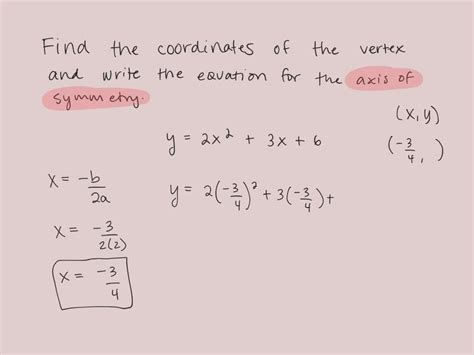 Find the coordinates of the vertex
and write the equation for the axis of
symmetry.
(x, y)
y = 2x² + 3x + 6
(-3/4, )
x = -b/2a
y = 2(-3/4)² + 3(-3/4) +
x = -3/2(2)
x = -3/4